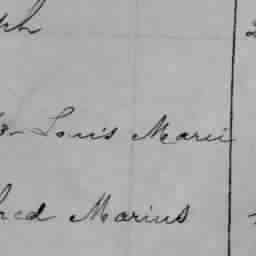 ph
Louis Marie
red Marius